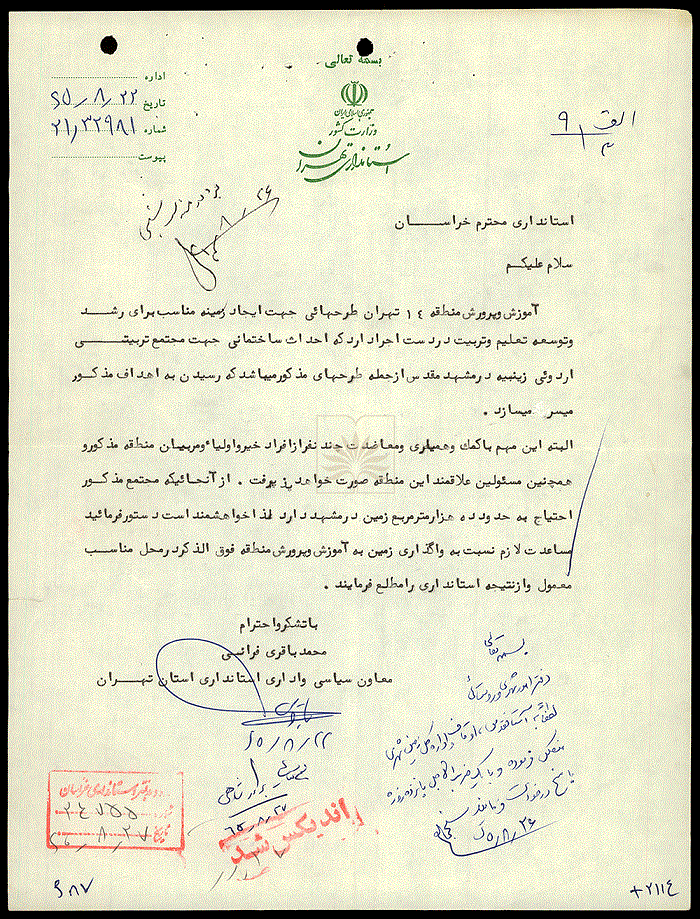 بسمه تعالی
جمهوری اسلامی ایران
وزارت کشور
استانداری تهران
اداره
تاریخ ۶۵/۸/۲۲
شماره ۲۱/۳۲۹۸۱
پیوست
الف ۹
استانداری محترم خراسان
سلام علیکم
آموزش وپرورش منطقه ۱٤ تهران طرحهائی جهت ایجاد زمینه مناسب برای رشد
وتوسعه تعلیم وتربیت دردست اجرا دارد که احداث ساختمانی جهت مجتمع تربیتی
اردوئی زینبیه درمشهد مقدس ازجمله طرحهای مذکورمیباشد که رسیدن به اهداف مذکور
میسر میسازد .
البته این مهم باکمك وهمیاری ومعاضدت چند نفرازافراد خیرواولیاٴ ومربیان منطقه مذکورو
همچنین مسئولین علاقمند این منطقه صورت خواهد پذیرفت . ازآنجائیکه مجتمع مذکور
احتیاج به حدود ده هزارمترمربع زمین درمشهد دارد لذا خواهشمند است دستورفرمائید
مساعدت لازم نسبت به واگذاری زمین به آموزش وپرورش منطقه فوق الذکر درمحل مناسب
معمول وازنتیجه استانداری رامطلع فرمایند .
باتشکرواحترام
محمد باقری فرائی
معاون سیاسی واداری استانداری استان تهران
۶۵/۸/۲۲
بسمه تعالی
دفتر امور شهری و روستائی
۶۵/۸/۲۶
۶۵/۸/۲۷
اندیکس شد
ورود دفتر استانداری خراسان
تاریخ ۶۵/۸/۲۷
۹۸۷
+۲۱۱٤